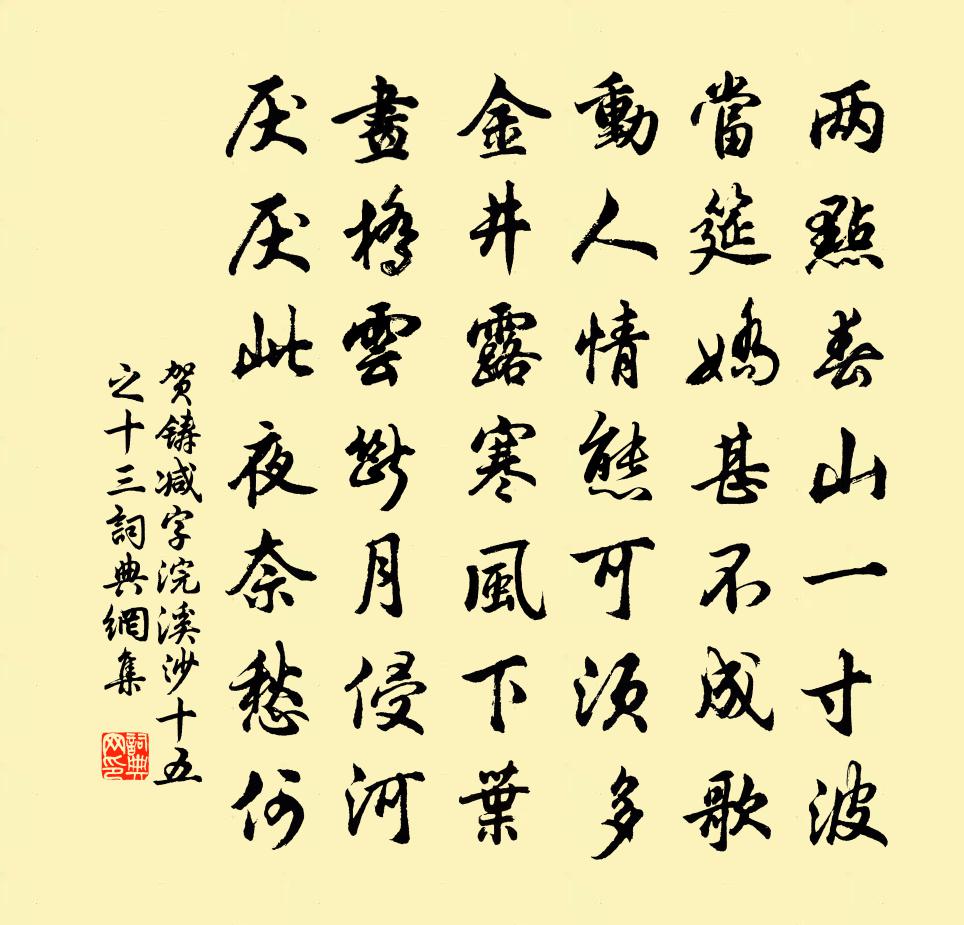 两點春山一寸波
當筵嬌甚不成歌
動人情態可須多
金井露寒風下葉
畫橋雲斷月侵河
厌厌此夜奈愁何
贺鑄减字浣溪沙十五
之十三詞典網集
詞典网印